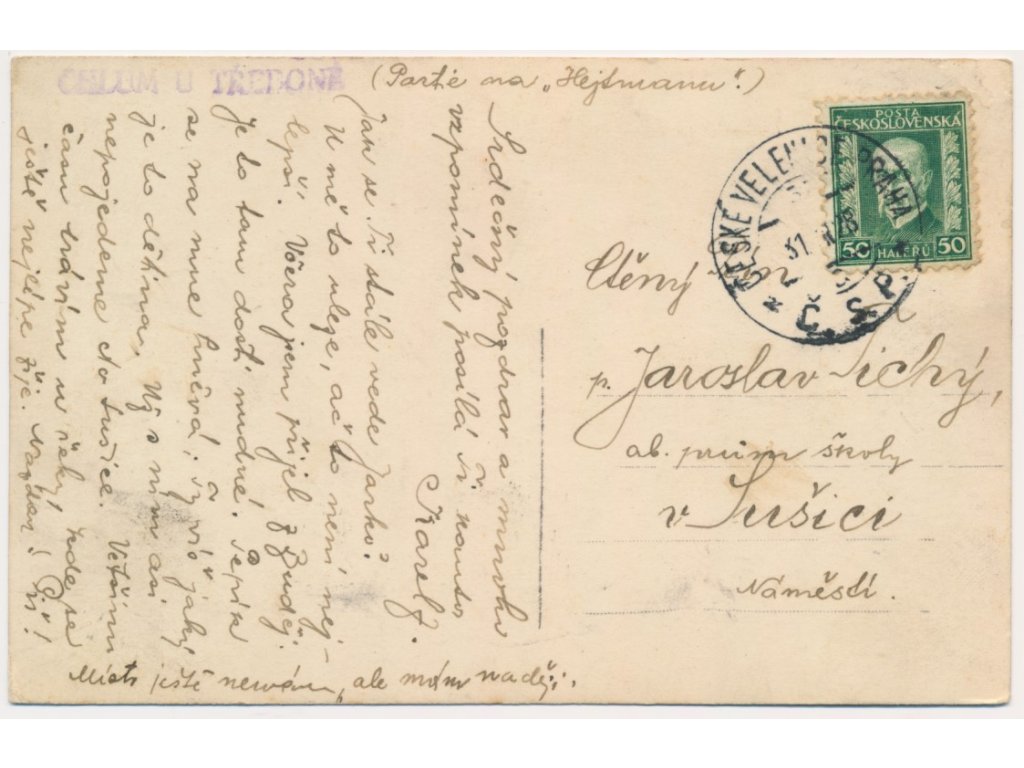 CHLUM U TŘEBONĚ
(Partě na „Hejtmanu“.)
Srdečný pozdrav a mnoho
vzpomínek posílá Ti
Karel
Jak se Ti stále vede Jarko?
U mě to ujde, ač to není nej-
lepší. Včera jsem přijel z Buděj.
Je to tam dosti nudné. Pepík
se na mne hněvá; Ty víš jaký
je to dětina. Už s ním asi
nepojedeme do Sušice. Většinu
času trávím u řeky, kde se
ještě nejlépe žije. Nazdar! Piš!
Místo ještě nemám, ale mám naději.
POŠTA
ČESKOSLOVENSKÁ
50 HALÉŘŮ 50
ČESKÉ VELENICE PRAHA
31
Č.S.P.
Ctěný pan
p. Jaroslav Tichý,
ab. prům školy
v Sušici
Náměstí.